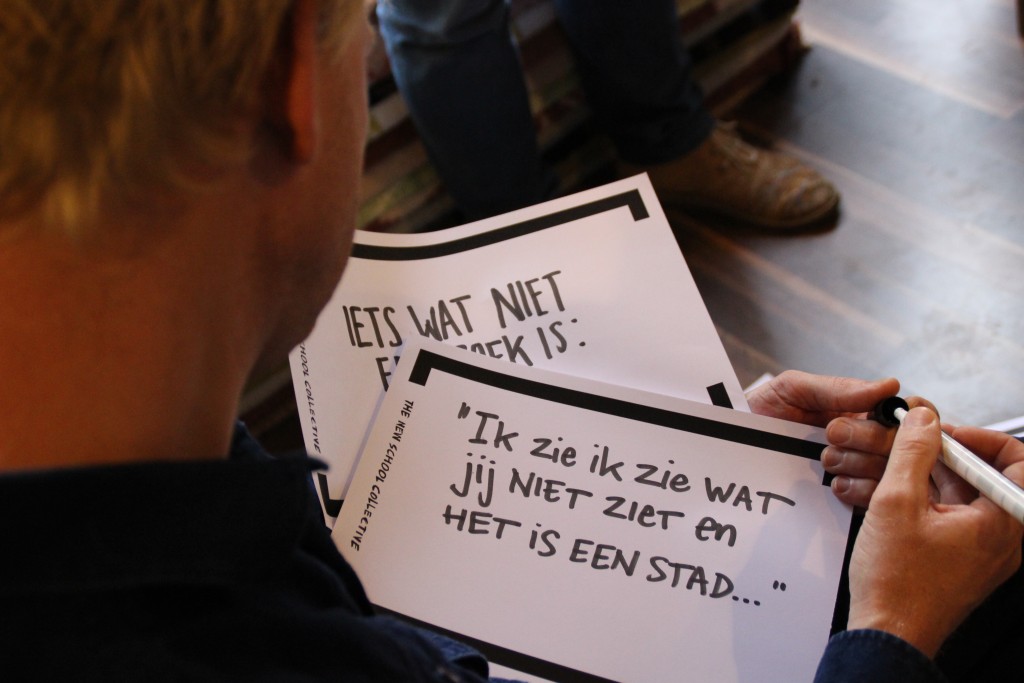 IETS WAT NIET
IS:
HOOL COLLECTIVE
THE NEW SCHOOL COLLECTIVE
"Ik zie ik zie WAT
jij NIET ZIET en
HET is EEN STAD..."